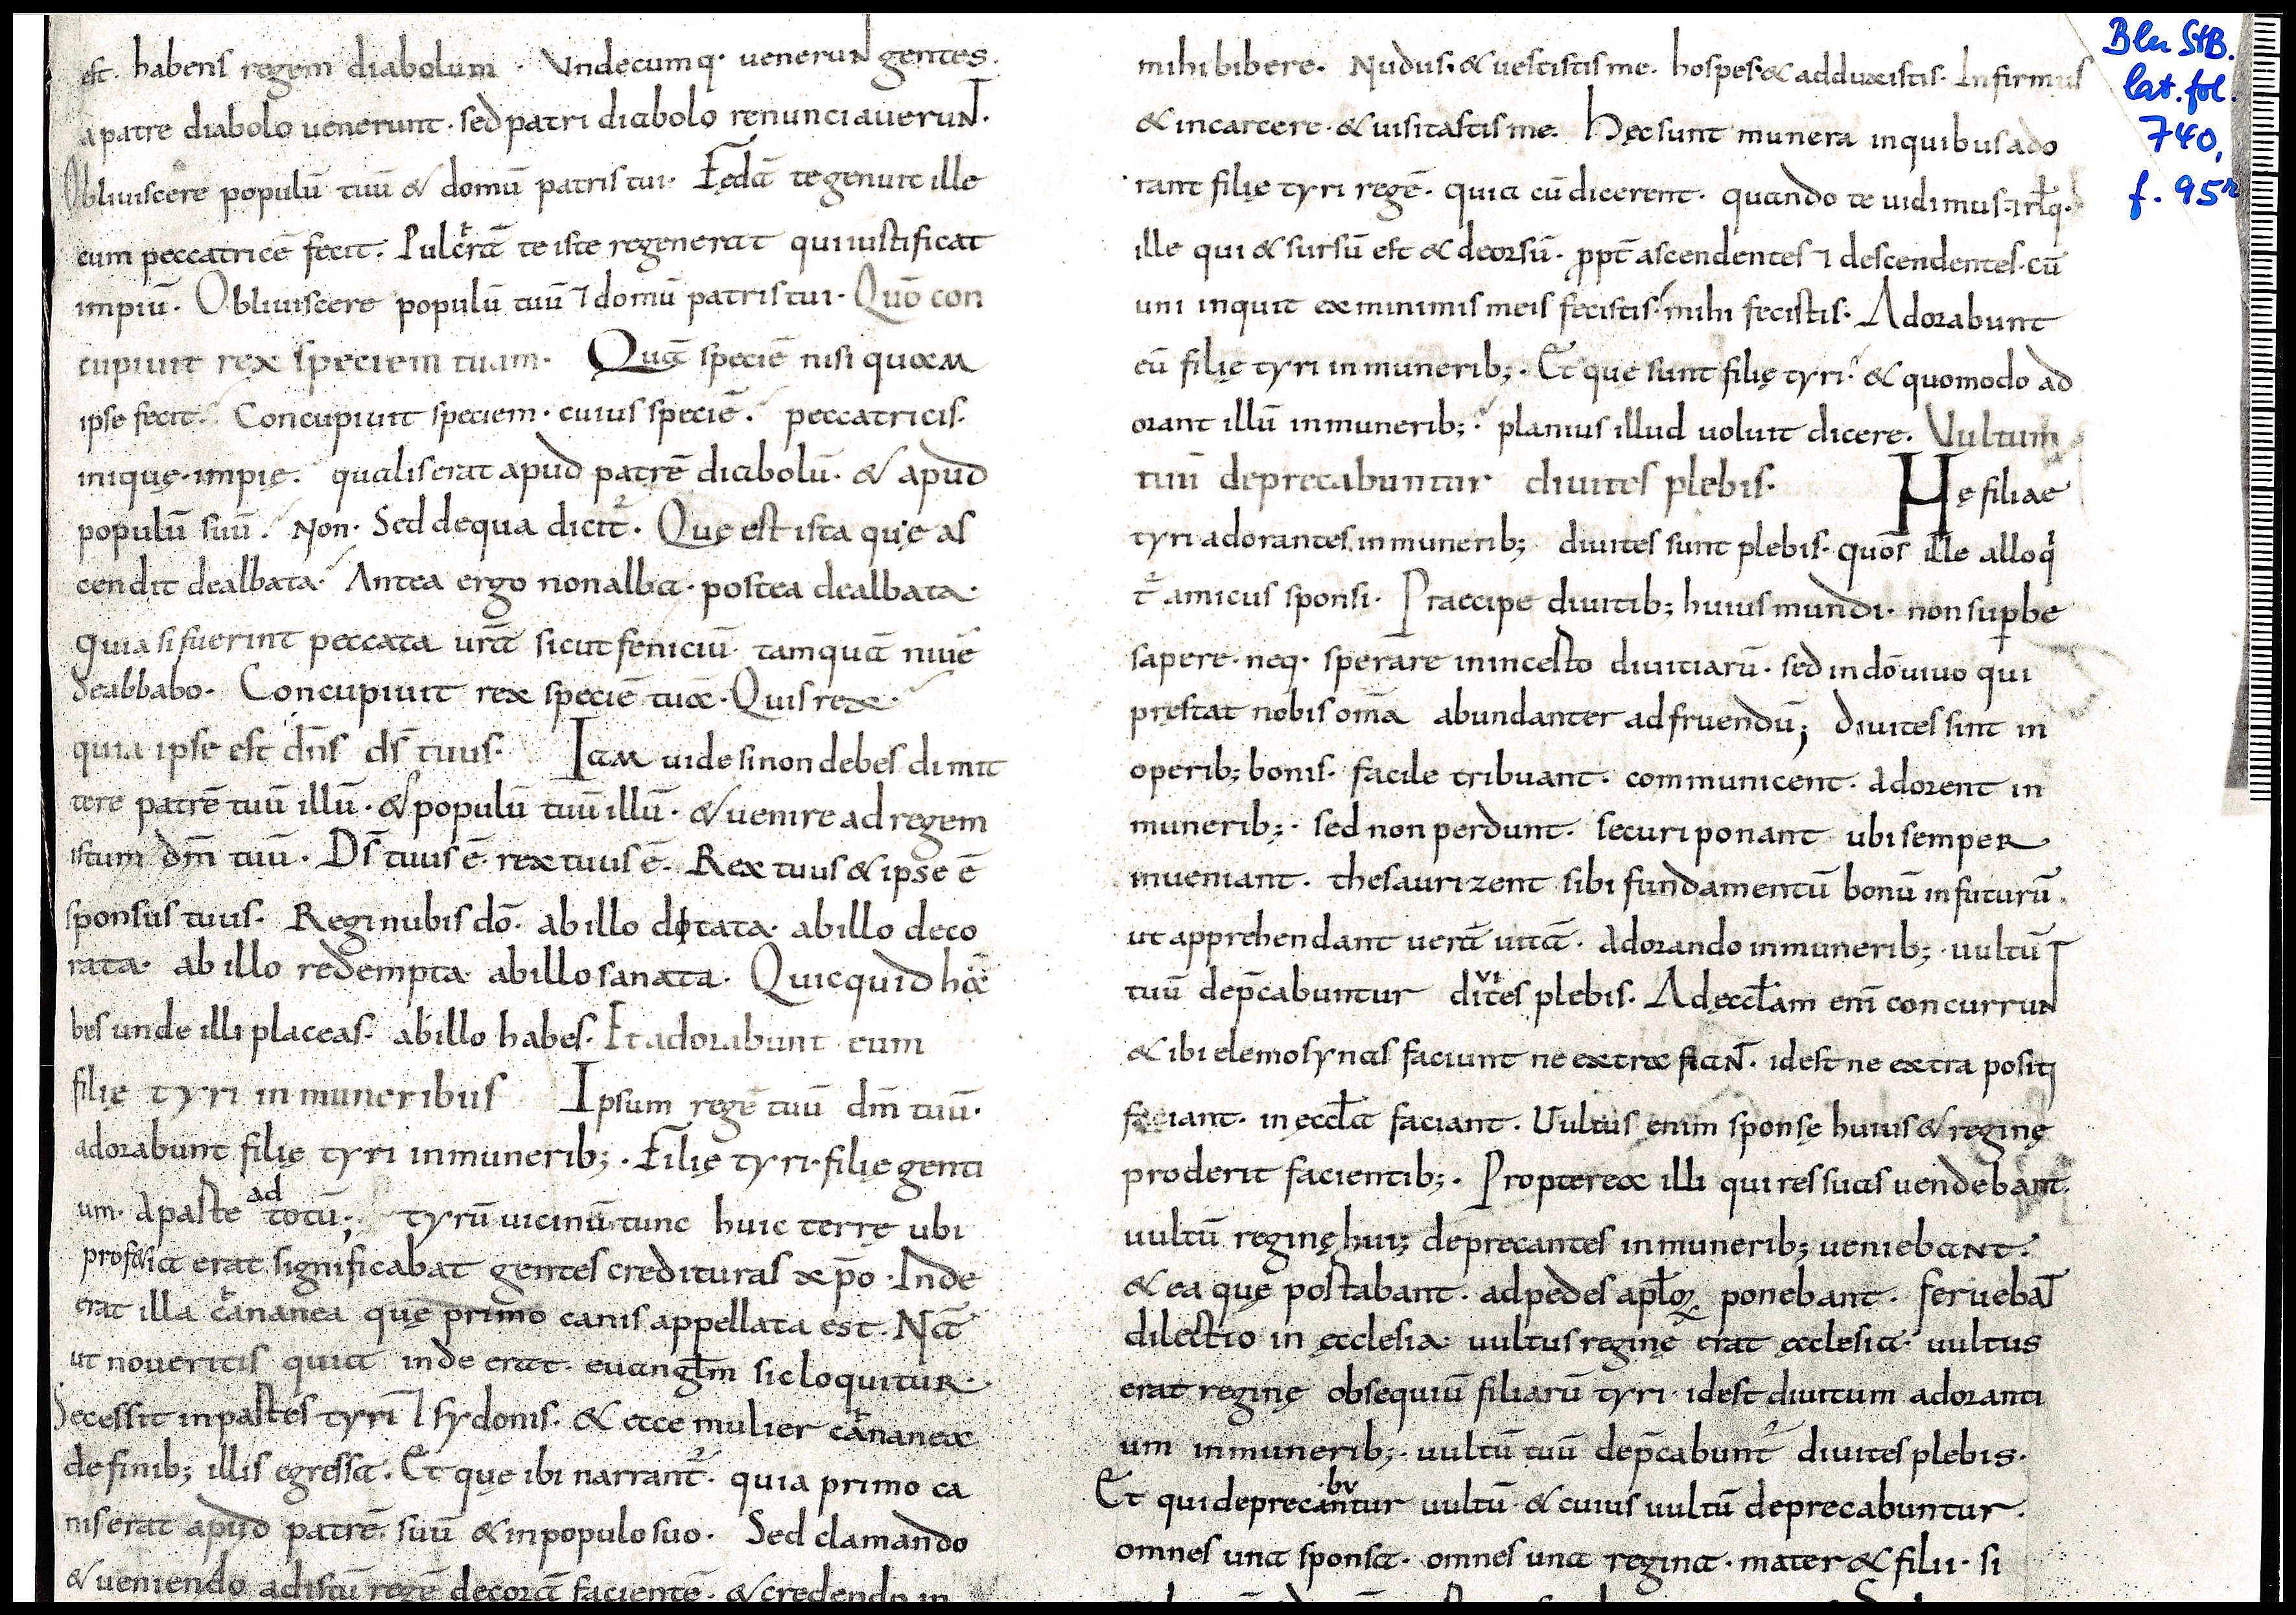 est. habens regem diabolum · Vndecumq· uenerunt gentes.
a patre diabolo uenerunt · sed patri diabolo renunciauerunt·
Obliuiscere populū tuū & domū patris tui· Fędā te genuit ille
cum peccatricē fecit· Pulcrā te iste regenerat qui iustificat
impiū· Obliuiscere populū tuū ⁊ domū patris tui· Quō con
cupiuit rex speciem tuam· Quā speciē nisi quam
ipse fecit· Concupiuit speciem· cuius speciē· peccatricis·
inique· impię· qualis erat apud patrē diabolū· & apud
populū suū· Non· Sed dequa dicit᷑· Quę est ista quę as
cendit dealbata· Antea ergo non alba· postea dealbata·
quia si fuerint peccata urā sicut feniciū· tamquā niuē
deabbabo· Concupiuit rex speciē tuā· Quis rex·
quia ipse est dn̄s ds̄ tuus· Iam uide si non debes dimit
tere patrē tuū illū· & populū tuū illū· & uenire ad regem
istum dm̄ tuū· Ds̄ tuus ē· rex tuus ē· Rex tuus & ipse ē
sponsus tuus· Regi nubis dō· ab illo dotata· ab illo deco
rata· ab illo redempta· ab illo sanata· Quicquid ha
bes unde illi placeas· ab illo habes· Et adorabunt eum
filię tyri in muneribus Ipsum regē tuū dm̄ tuū·
adorabunt filię tyri in munerib;· Filię tyri· filię genti
um· A paste ad totū; tyrū uicinū tunc huic terrę ubi
prof&ia erat significabat gentes credituras xp̄o· Inde
erat illa cananea quę primo canis appellata est· Nā
ut noueritis quia inde erat· euangl̄m sic loquitur·
Secessit in pastes tyri ⁊ sydonis· & ecce mulier cananea
de finib; illis egressa· Et quę ibi narrant᷑· quia primo ca
nis erat apud patrē suū & in populo suo· Sed clamando
& ueniendo ad istū regē decorā facientē· & credendo in
mihi bibere· Nudus· & uestistis me· hospes· & adduxistis· Infirmus
& in carcere· & uisitastis me· Hęc sunt munera in quibus ado
rant filię tyri regē· quia cū dicerent· quando te uidimus
ille qui & sursū est & deorsū· ppt̄ ascendentes ⁊ descendentes· cū
uni inquit ex minimis meis fecistis· mihi fecistis· Adorabunt
eū filię tyri in munerib;· Et que sunt filię tyri· & quomodo ad
orant illū in munerib;· planius illud uoluit dicere· Vultum
tuū deprecabuntur diuites plebis· Hę filiae
tyri adorantes in munerib; diuites sunt plebis· quos ille alloq
t᷑ amicus sponsi· Praecipe diuitib; huius mundi· non supbe
sapere· neq· sperare in incesto diuitiarū· sed in dō uiuo qui
pręstat nobis om̄a abundanter ad fruendū; diuites sint in
operib; bonis· facile tribuant· communicent· Adorent in
munerib;· sed non perdunt· securi ponant ubi semper
inueniant· thesaurizent sibi fundamentū bonū in futurū·
ut apprehendant uerā uitā· Adorando in munerib;· uultū
tuū dep̄cabuntur diuites plebis· Ad ęccl̄am enī concurrunt
& ibi elemosynas faciunt ne extra fiant· id est ne extra positi
faciant· in ęccl̄a faciant· Uultus enim sponsę huius & reginę
proderit facientib;· Propterea illi qui res suas uendebant·
uultū reginę hui; deprecantes in munerib; ueniebant·
& ea quę postabant· ad pedes apl̄oꝝ ponebant· feruebat
dilectio in ęcclesia· uultus reginę erat ęcclesia· uultus
erat reginę obsequiū filiarū tyri· id est diuitum adoranti
um in munerib;· uultū tuū dep̄cabunt᷑ diuites plebis·
Et qui deprecabuntur uultū· & cuius uultū deprecabuntur·
omnes una sponsa· omnes una regina· mater & filii· si
Bln StB.
lat. fol.
740,
f. 95r